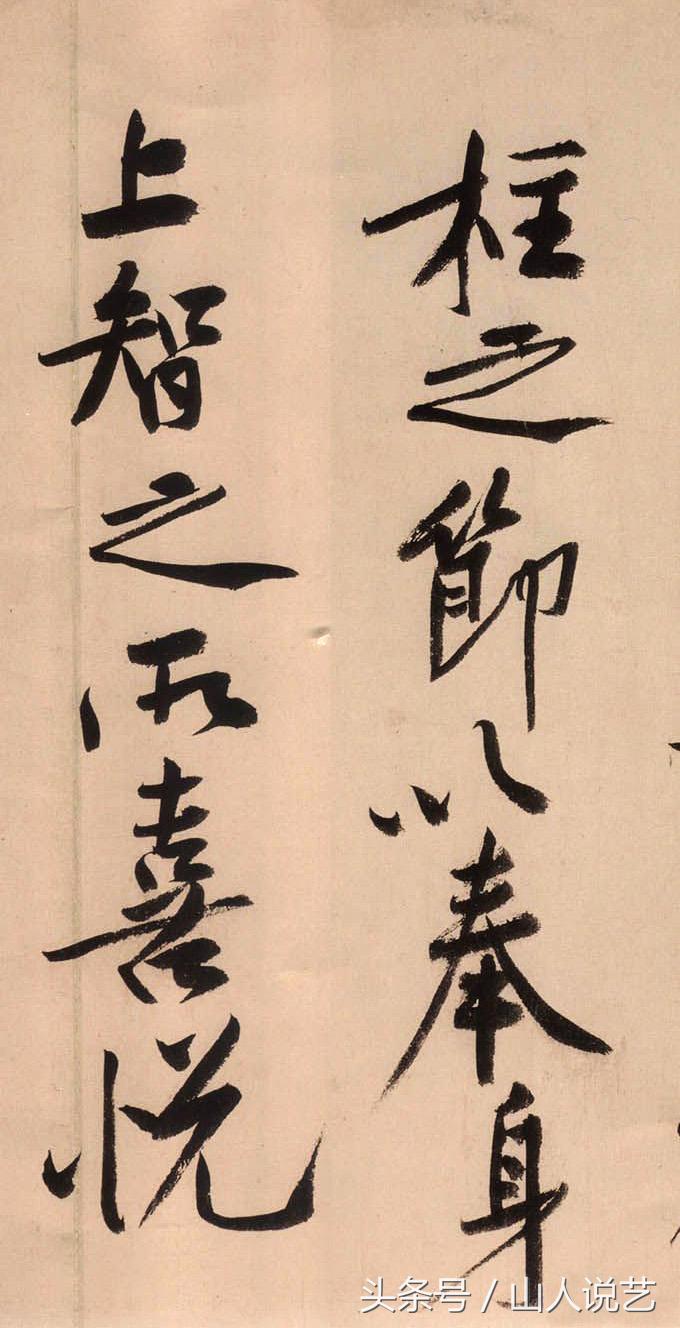 柱之節以奉身
上智之所喜悦
头条号 / 山人说艺